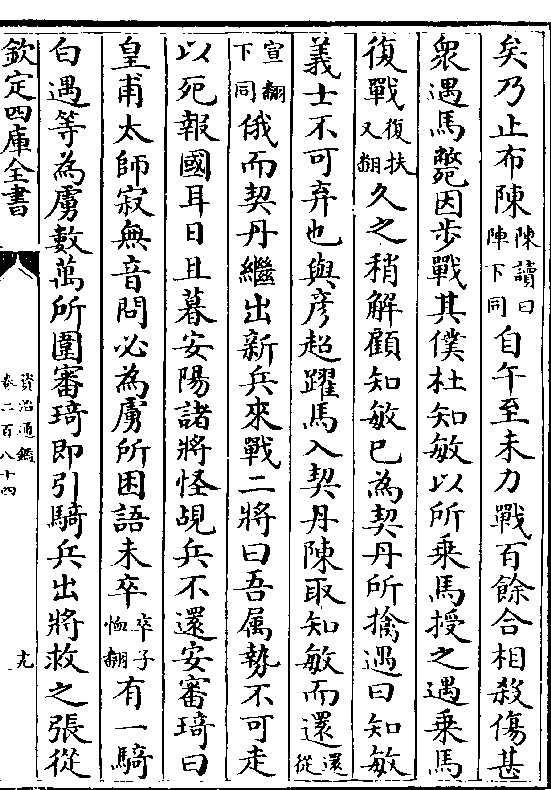 矣乃止布陳陳讀曰陣下同自午至未力戰百餘合相殺傷甚
衆遇馬斃因步戰其僕杜知敏以所乗馬授之遇乗馬
復戰復扶又翻久之稍解顧知敏已為契丹所擒遇曰知敏
義士不可弃也與彦超躍馬入契丹陳取知敏而還還從
宣翻下同俄而契丹繼出新兵來戰二將曰吾属勢不可走
以死報國耳日且暮安陽諸將怪覘兵不還安審琦曰
皇甫太師寂無音問必為虜所困語未卒卒子恤翻有一騎
白遇等為虜數萬所圍審琦即引騎兵出將救之張從
欽定四庫全書
資治通鑑
卷二百八十四
九